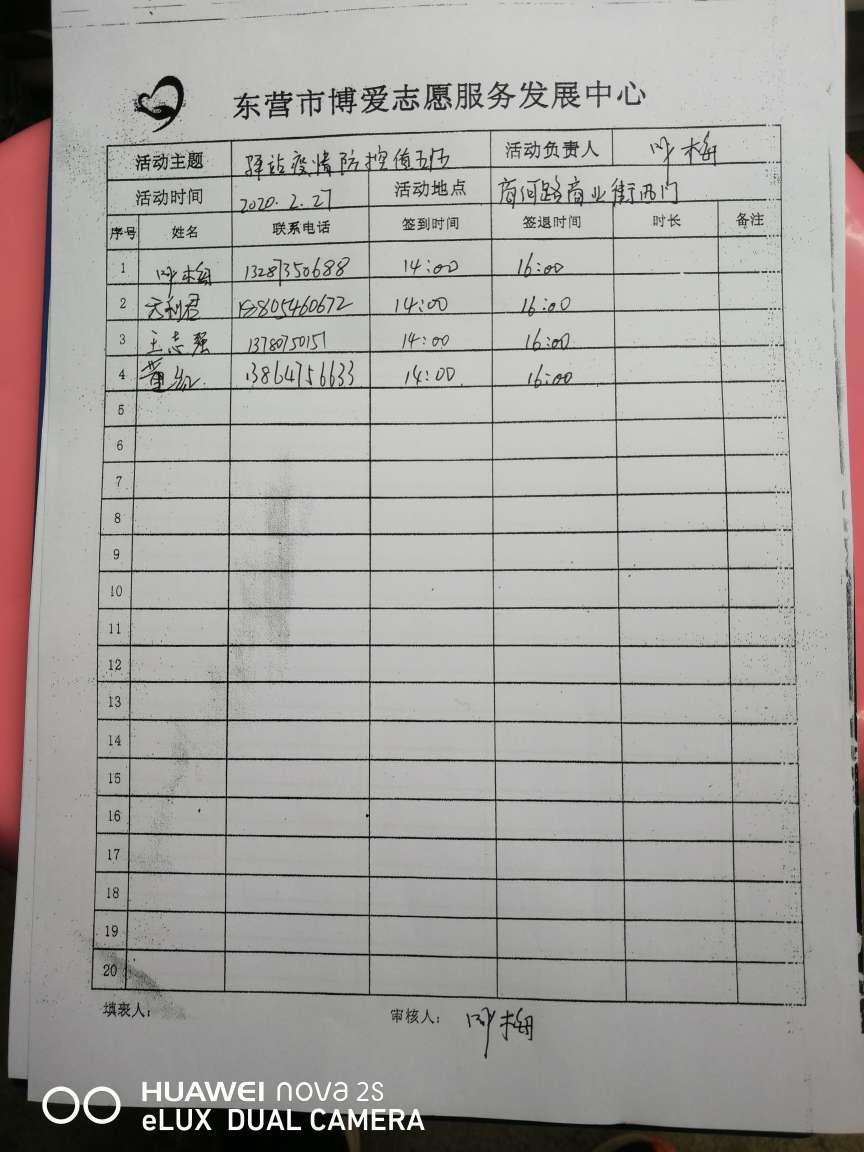 东营市博爱志愿服务发展中心
活动主题 驿站疫情防控值 活动负责人 叶梅
活动时间 2020.2.27 活动地点 商河路商业街西门
序号 姓名 联系电话 签到时间 签退时间 时长 备注
1 叶梅 13287350688 14:00 16:00
2 利君 805460672 14:00 16:00
3 王志强 13780750151 14:00 16:00
4 董红 13864756633 14:00 16:00
5
6
7
8
9
10
11
12
13
14
15
16
17
18
19
20
填表人： 审核人： 叶梅
HUAWEI nova 2S
eLUX DUAL CAMERA